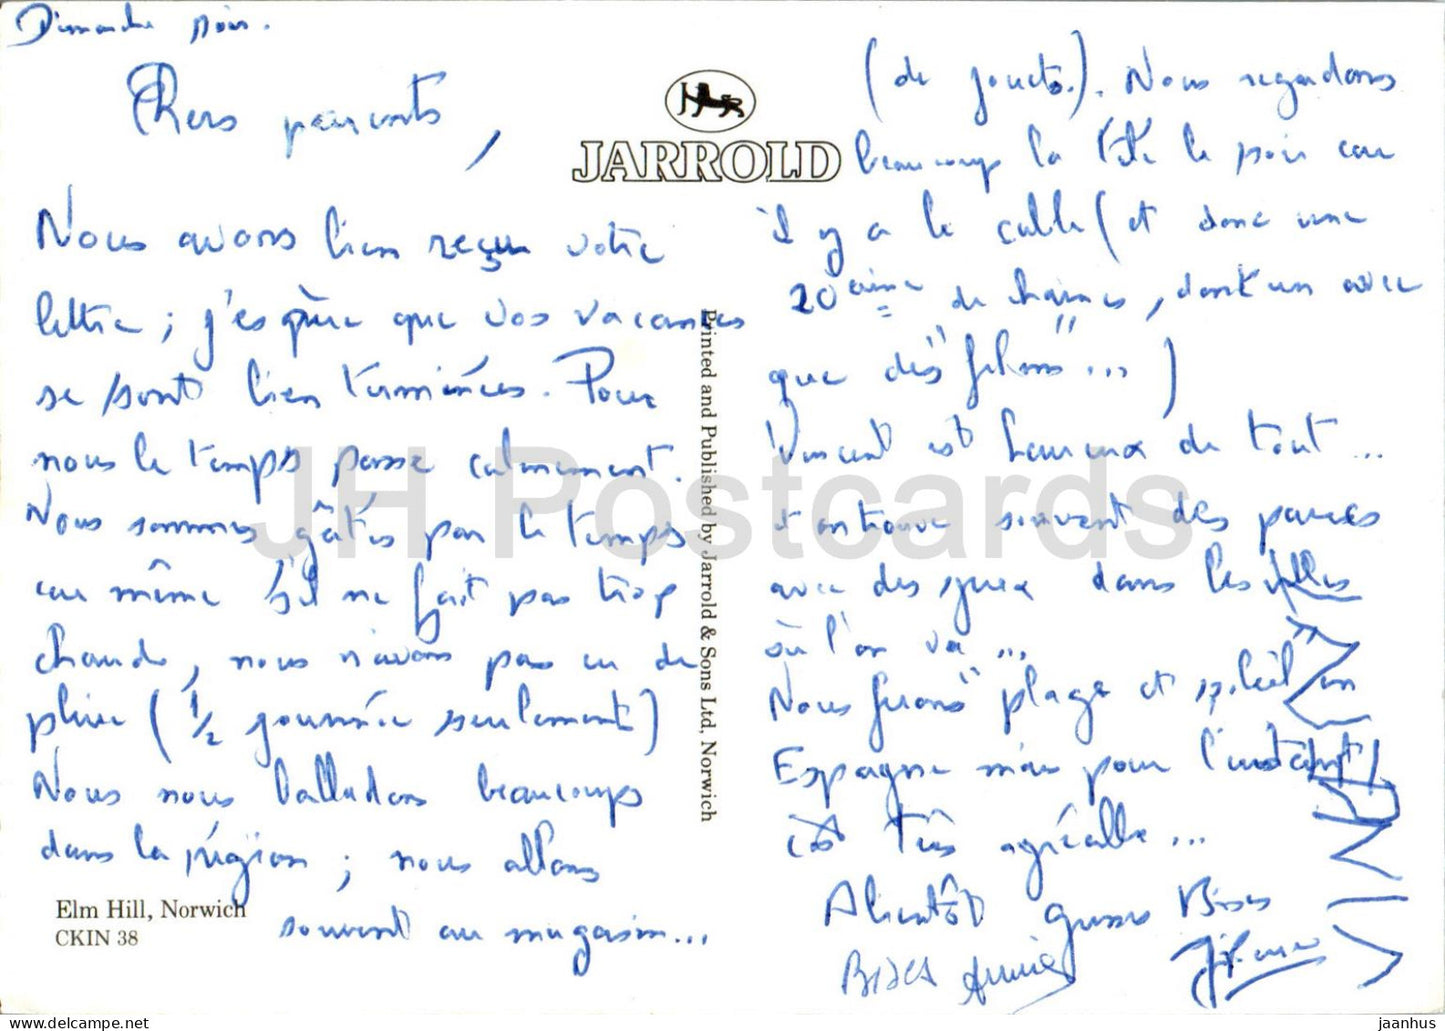 Dimanche soir.
Chers parents,
Nous avons bien reçu votre
lettre ; j'espère que vos vacances
se sont bien terminées. Pour
nous le temps passe calmement.
Nous sommes gâtés par le temps
car même s'il ne fait pas trop
chaud, nous n'avons pas eu de
pluie (1/2 journée seulement)
Nous nous balladons beaucoup
dans la région ; nous allons
souvent au magasin...
Elm Hill, Norwich
CKIN 38
JARROLD
Printed and Published by Jarrold & Sons Ltd, Norwich
(de jouets.). Nous regardons
beaucoup la télé le soir car
il y a le cable (et donc une
20aine de chaines, dont un avec
que des "films"...)
Vincent est heureux de tout...
et on trouve souvent des parcs
avec des jeux dans les villes
où l'on va...
Nous ferons "plage et soleil" en
Espagne mais pour l'instant
c'est très agréable...
A bientôt grosses Bises
Bises Annie
VINCENT
JH Postcards
jaanhus.com